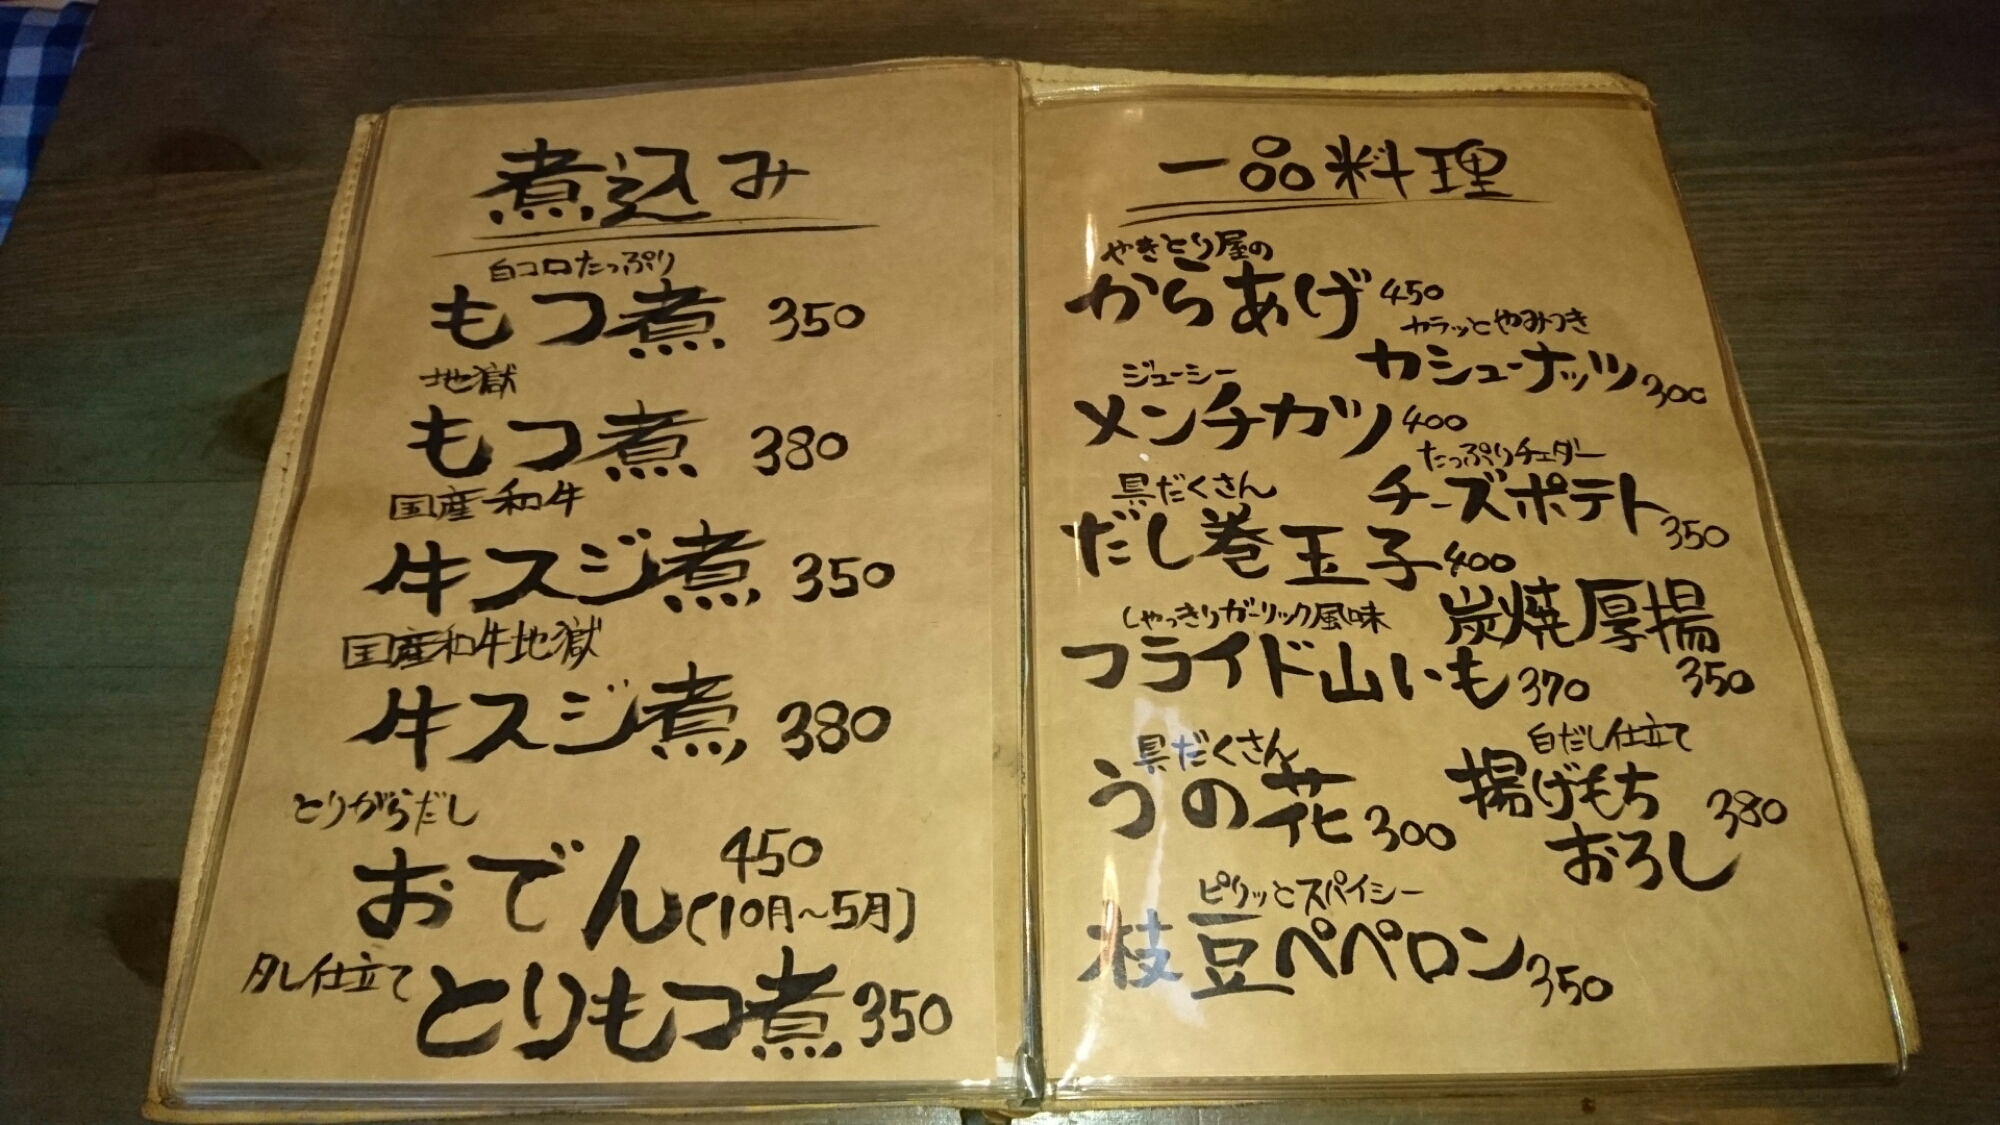 煮込み
白コロたっぷり
もつ煮 350
地獄
もつ煮 380
国産和牛
牛スジ煮 350
国産和牛地獄
牛スジ煮 380
とりがらだし
おでん 450
(10月~5月)
タレ仕立て
とりもつ煮 350
一品料理
やきとり屋の
からあげ 450
カラッとやみつき
カシューナッツ 300
ジューシー
メンチカツ 400
たっぷりチェダー
チーズポテト 350
具だくさん
だし巻玉子 400
炭焼厚揚
350
しゃっきりガーリック風味
フライド山いも 370
具だくさん
うの花 300
白だし仕立て
揚げもち
おろし 380
ピリッとスパイシー
枝豆ペペロン 350